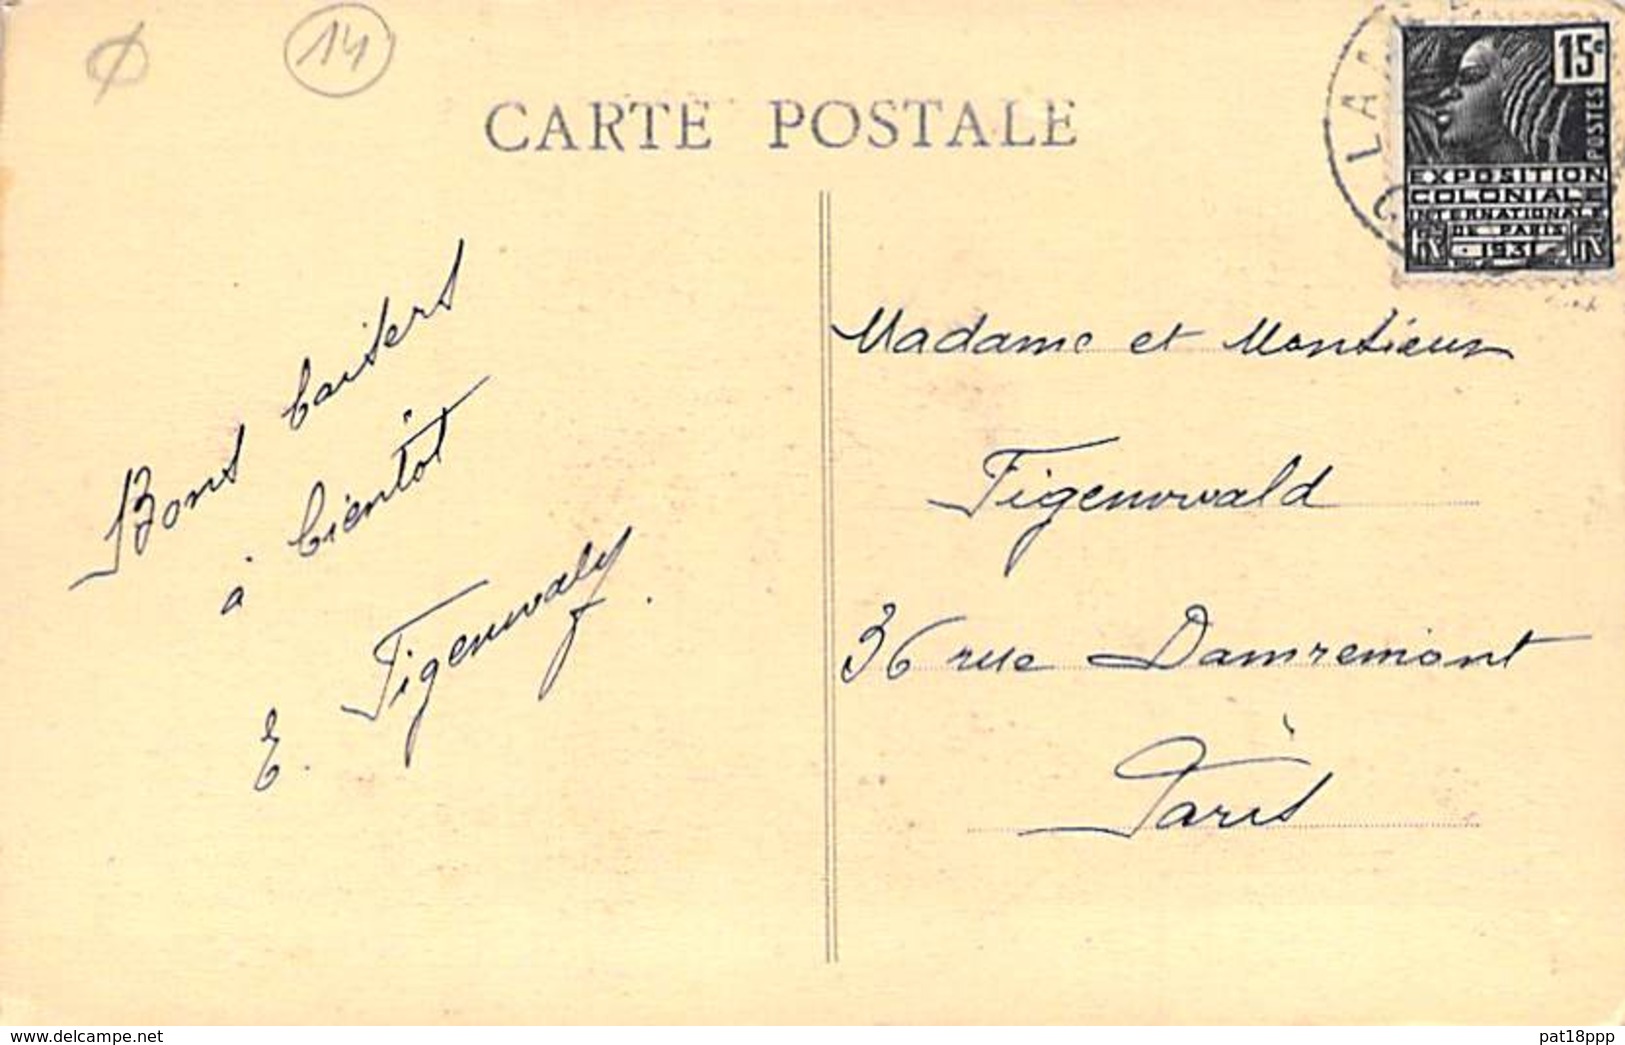 14
CARTE POSTALE
15c
POSTES
EXPOSITION
COLONIALE
INTERNATIONALE
DE PARIS
1931
Bons baisers
à bientôt
E. Figenwald
Madame et Monsieur
Figenwald
36 rue Damremont
Paris
www.delcampe.net
pat18ppp